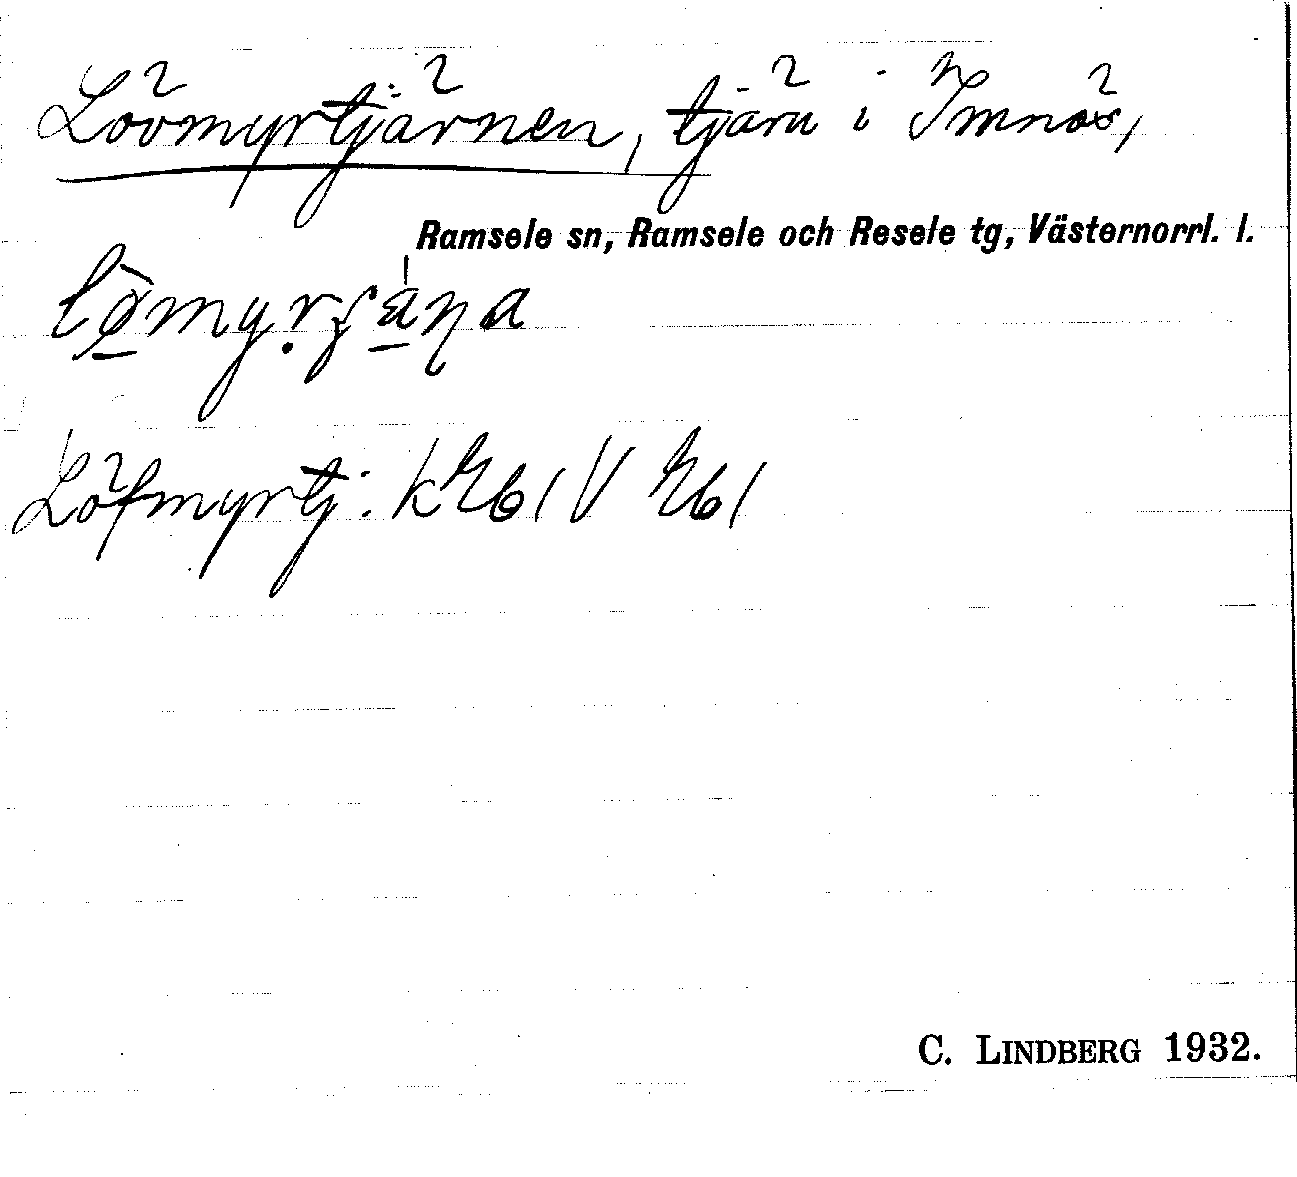 Lövmyrtjärnen, tjärn i Imnäs,
Ramsele sn, Ramsele och Resele tg, Västernorrl. l.
Löfmyrtj. k
C. LINDBERG 1932.